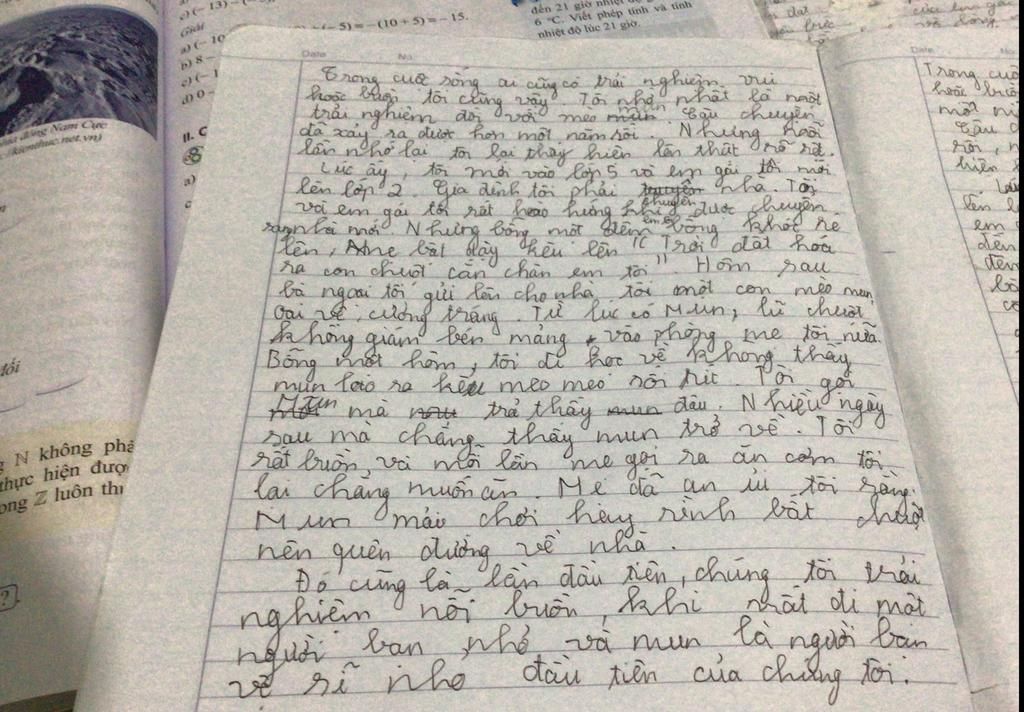 c) (−13) −
(−5) = −(10 + 5) = −15.
Giải
a) (−10
b) 8 −
c) (−1
d) 0 −
đến 21 giờ nhiệt độ
6 °C. Viết phép tính và tính
nhiệt độ lúc 21 giờ.
đông Nam Cực
kienthuc.net.vn)
II. C
a)
đối
N không phả
thực hiện đượ
ong Z luôn th
?
Date
No.
Trong cuộc sống ai cũng có trải nghiệm vui
hoặc buồn tôi cũng vậy. Tôi nhớ nhất là một
trải nghiệm đối với mèo mun. Câu chuyện
đã xảy ra được hơn một năm rồi. Nhưng mỗi
lần nhớ lại tôi lại thấy hiện lên thật rõ rệt.
Lúc ấy, tôi mới vào lớp 5 và em gái tôi mới
lên lớp 2. Gia đình tôi phải chuyển nhà. Tôi
và em gái tôi rất hào hứng khi được chuyển
sang nhà mới. Nhưng bỗng một đêm em bỗng khóc ré
lên, mẹ bật dậy kêu lên "Trời đất hoá
ra con chuột cắn chân em tôi". Hôm sau
bà ngoại tôi gửi lên cho nhà tôi một con mèo mun,
oai vệ, cường tráng. Từ lúc có Mun, lũ chuột
không giám bén mảng vào phòng mẹ tôi nữa.
Bỗng một hôm, tôi đi học về không thấy
mun lao ra kêu meo meo rối rít. Tôi gọi
Mun mà trả thấy đâu. Nhiều ngày
sau mà chẳng thấy mun trở về. Tôi
rất buồn, và mỗi lần mẹ gọi ra ăn cơm tôi
lại chẳng muốn ăn. Mẹ đã an ủi tôi rằng:
Mun mải chơi hay rình bắt chuột
nên quên đường về nhà.
Đó cũng là lần đầu tiên, chúng tôi trải
nghiệm nỗi buồn, khi mất đi một
người bạn nhỏ và mun là người bạn
vệ sĩ nhỏ đầu tiên của chúng tôi.
Date
No.
Trong cuộ
hoặc buồ
một
Câu
rồi,
hiện
lên l
em
đến
đêm